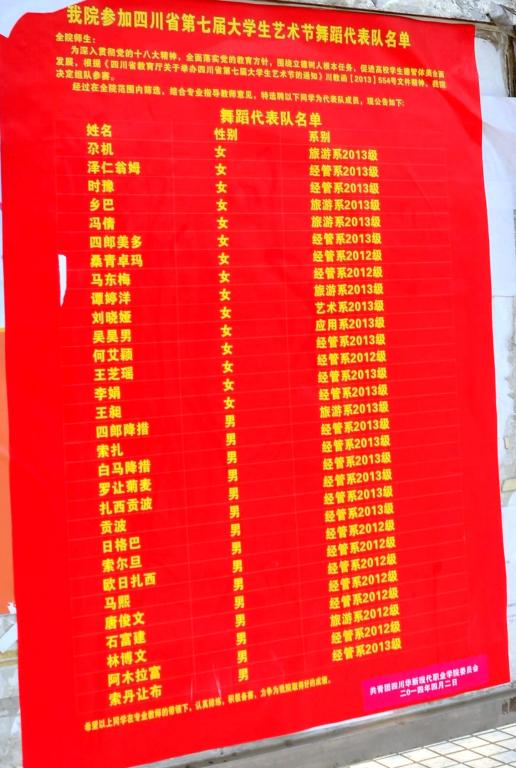 我院参加四川省第七届大学生艺术节舞蹈代表队名单
全院师生：
为深入贯彻党的十八大精神，全面落实党的教育方针，围绕立德树人根本任务，促进高校学生德智体美全面
发展，根据《四川省教育厅关于举办四川省第七届大学生艺术节的通知》川教函［2013］554号文件精神，我院
决定组队参赛。
经过在全院范围内筛选，结合专业指导教师意见，特选聘以下同学为代表队成员，现公告如下：
舞蹈代表队名单
姓名 性别 系别
尕机 女 旅游系2013级
泽仁翁姆 女 经管系2013级
时豫 女 经管系2013级
乡巴 女 旅游系2013级
冯倩 女 旅游系2013级
四郎美多 女 经管系2013级
桑青卓玛 女 经管系2012级
马东梅 女 经管系2013级
谭婷洋 女 旅游系2013级
刘晓娅 女 艺术系2013级
吴昊男 女 应用系2013级
何艾颖 女 经管系2013级
王芝瑶 女 经管系2012级
李娟 女 经管系2013级
王昶 女 经管系2013级
四郎降措 男 旅游系2013级
索扎 男 经管系2013级
白马降措 男 经管系2013级
罗让菊麦 男 经管系2013级
扎西贡波 男 经管系2013级
贡波 男 经管系2013级
日格巴 男 经管系2013级
索尔旦 男 经管系2012级
欧日扎西 男 经管系2012级
马熙 男 经管系2012级
唐俊文 男 经管系2012级
石富建 男 经管系2012级
林博文 男 旅游系2013级
阿木拉富 男 经管系2012级
索丹让布 男 经管系2013级
希望以上同学在专业教师的带领下，认真排练，积极备赛，力争为我院取得好的成绩。
共青团四川华新现代职业学院委员会
二〇一四年四月二日